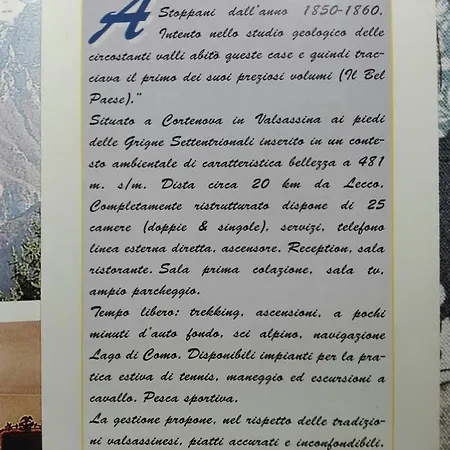 A Stoppani dall'anno 1850-1860.
Intento nello studio geologico delle
circostanti valli abitò queste case e quindi trac-
ciava il primo dei suoi preziosi volumi (Il Bel
Paese)."
Situato a Cortenova in Valsassina ai piedi
delle Grigne Settentrionali inserito in un conte-
sto ambientale di caratteristica bellezza a 481
m. s/m. Dista circa 20 km da Lecco.
Completamente ristrutturato dispone di 25
camere (doppie & singole), servizi, telefono
linea esterna diretta, ascensore. Reception, sala
ristorante. Sala prima colazione, sala tv,
ampio parcheggio.
Tempo libero: trekking, ascensioni, a pochi
minuti d'auto fondo, sci alpino, navigazione
Lago di Como. Disponibili impianti per la pra-
tica estiva di tennis, maneggio ed escursioni a
cavallo. Pesca sportiva.
La gestione propone, nel rispetto delle tradizio-
ni valsassinesi, piatti accurati e inconfondibili.